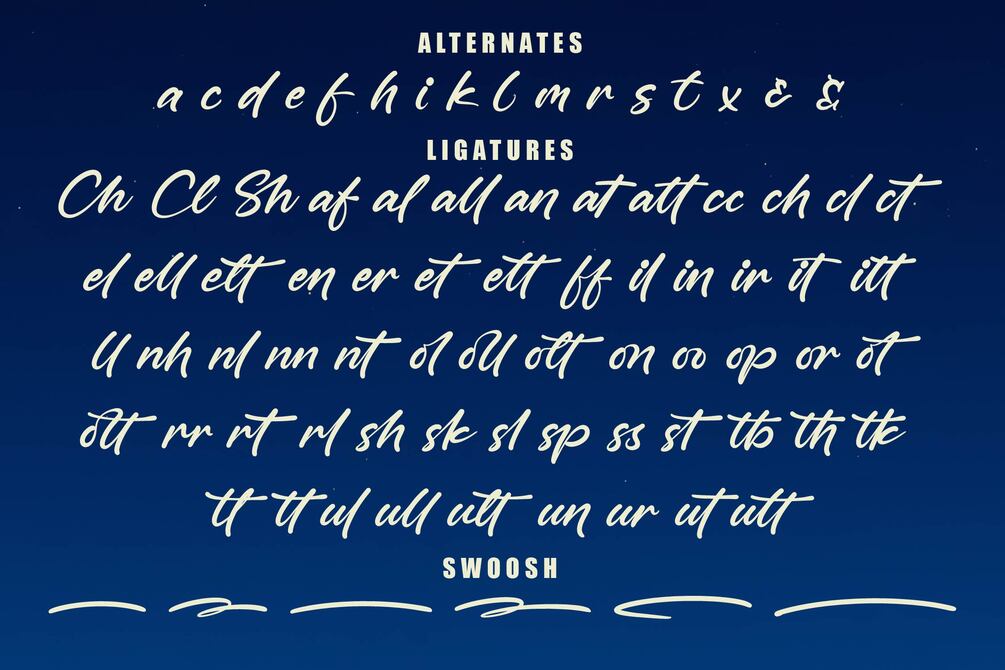 ALTERNATES
a c d e f h i k l m r s t x & &
LIGATURES
Ch Cl Sh af al all an at att cc ch cl ct
el ell elt en er et ett ff il in ir it itt
ll nh nl nn nt ol oll olt on oo op or ot
ott rr rt rl sh sk sl sp ss st tb th tk
tl tt ul ull ult un ur ut utt
SWOOSH